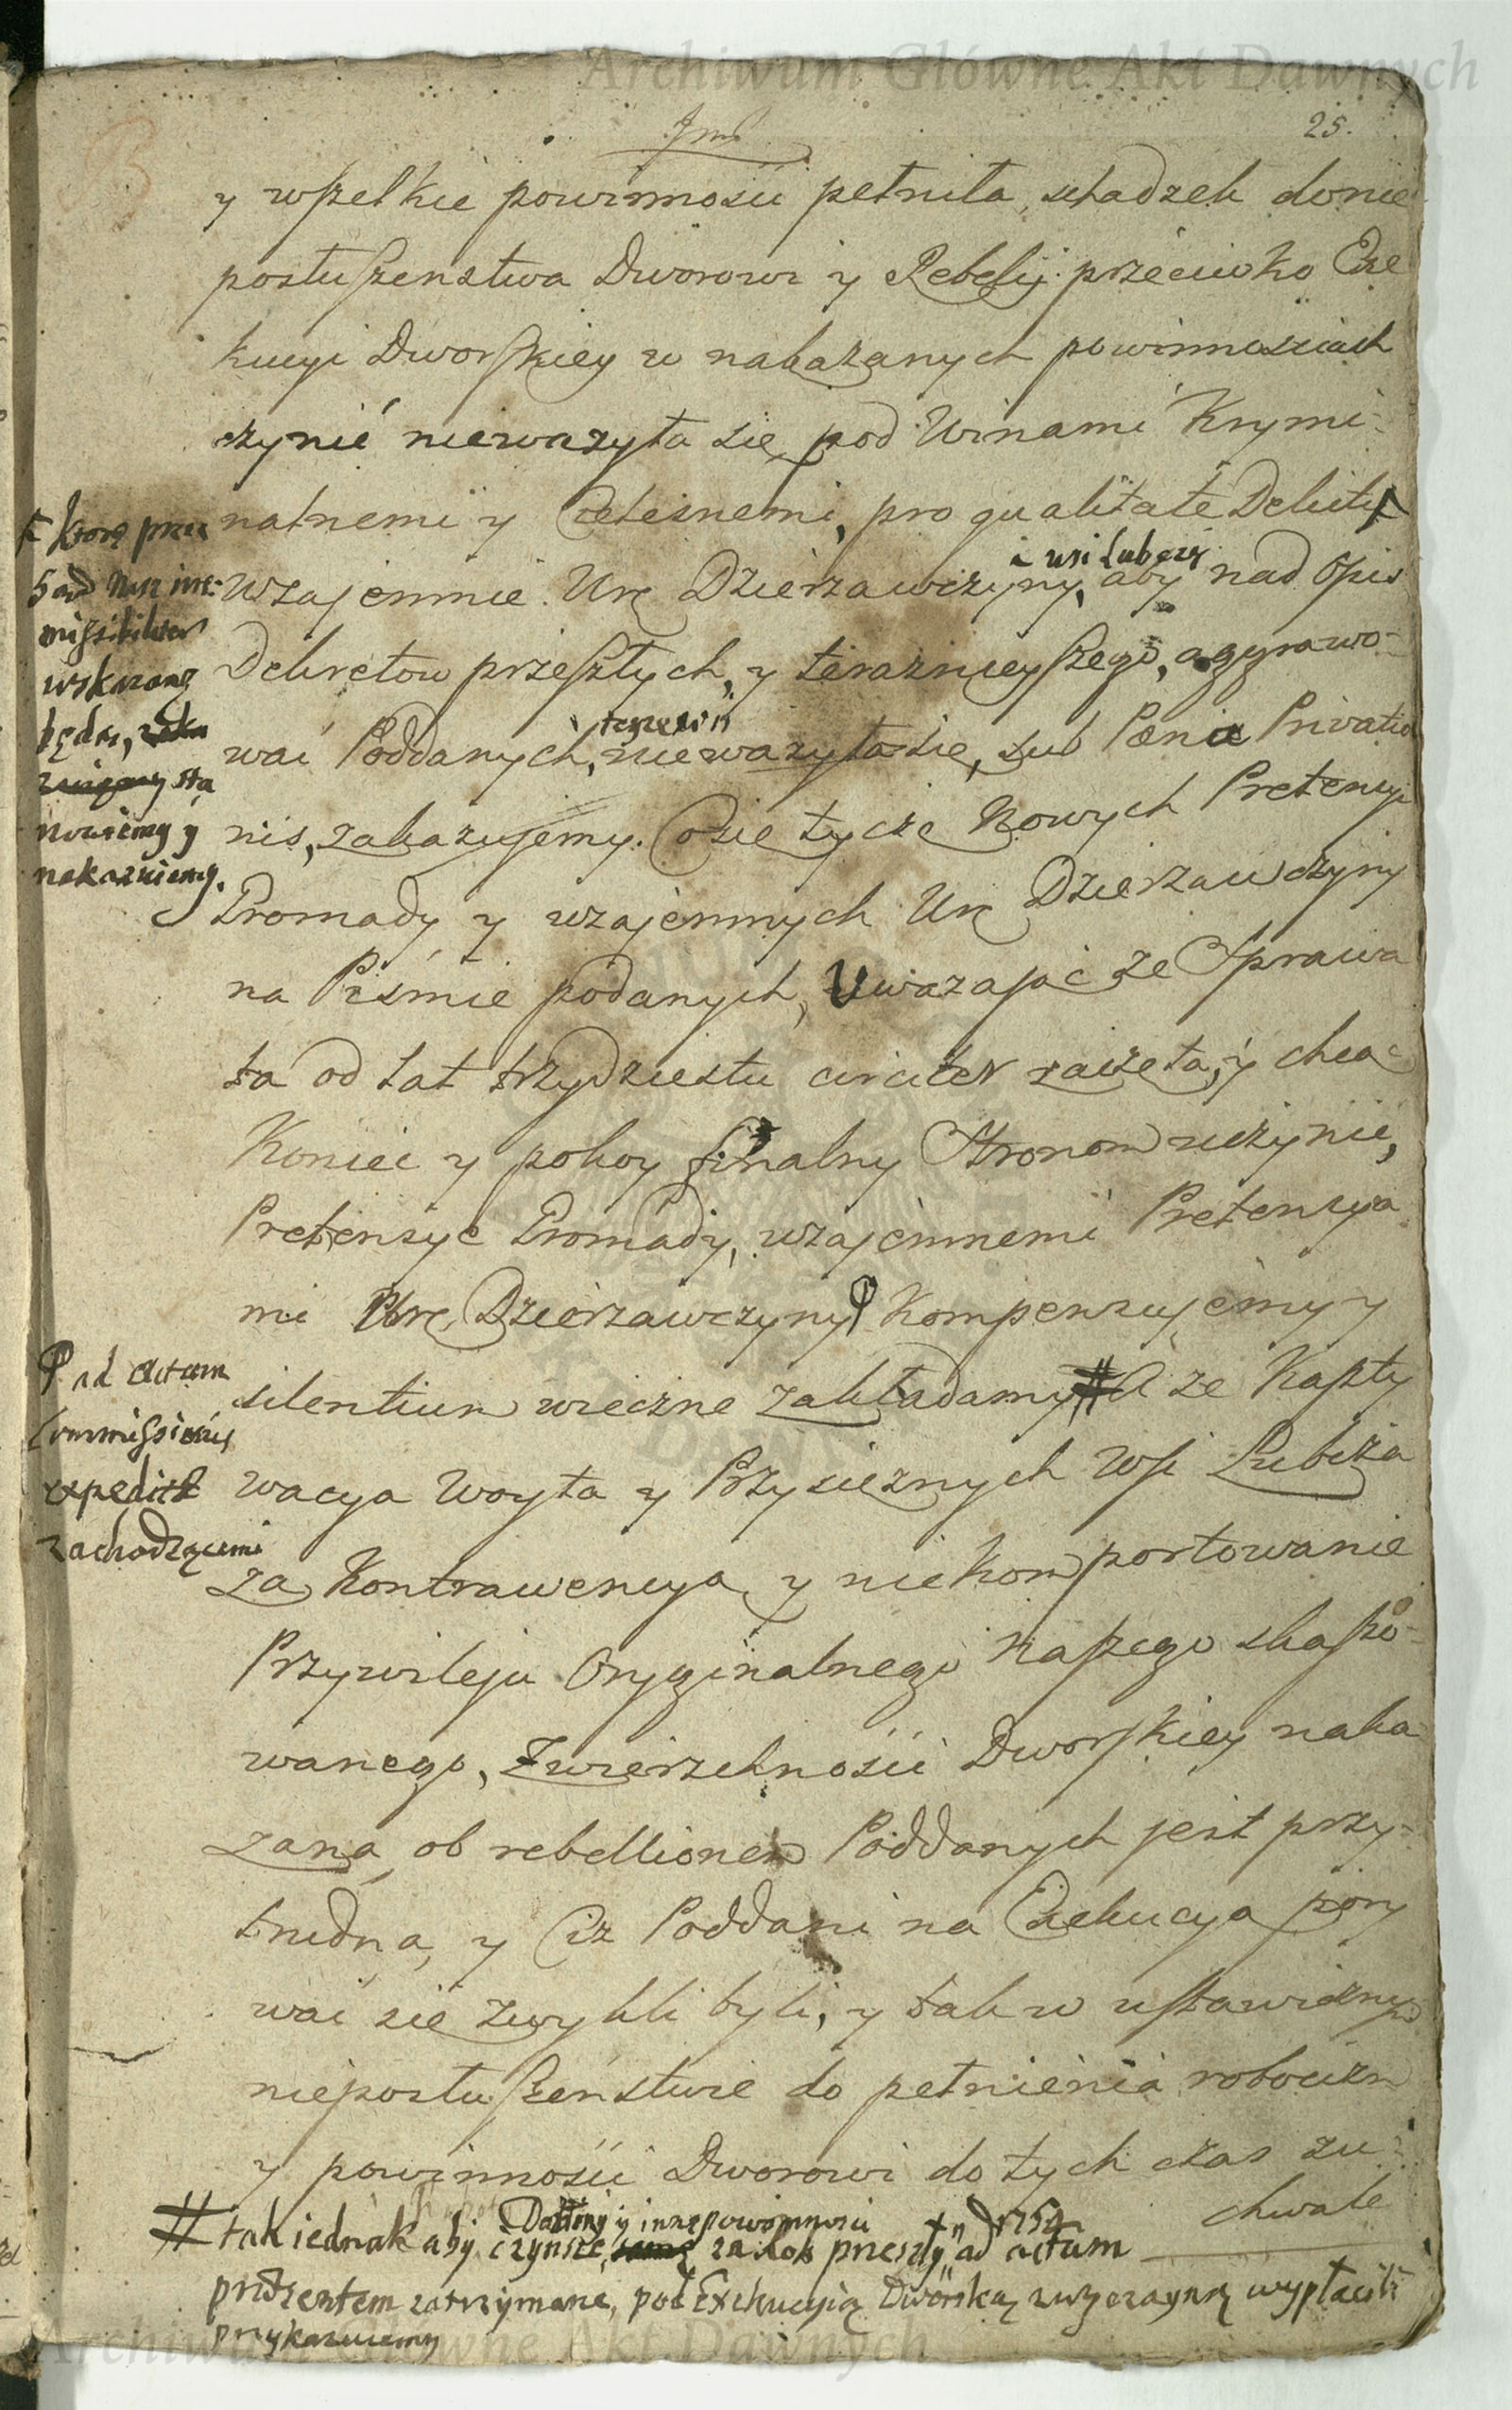 Archiwum Główne Akt Dawnych
25.
y wszelkie powinnosci pełniła, schadzek do nie
posłuszenstwa Dworowi y Rebelij przeciwko Exe
kucyi Dworskiey w nakazanych powinnosciach
czynić niewazyła się, pod Winami Krymi-
nalnemi y Cielesnemi, pro qualitate Delicti
Wzajemnie Ur. Dzierzawczyny, aby nad Opis
i wsi Lubcza
Dekretow przeszłych, y teraznieyszego, aggrawo-
wać Poddanych, niewazyła się, sub Pœna Privatio
teyze wsi
nis, zakazujemy. Co się tycze Nowych Pretensyi
Gromady y wzajemnych Ur. Dzierzawczyny
na Piśmie podanych, Uwazając ze Sprawa
ta od lat trzydziestu circiter zaczęta, y chcąc
Koniec y pokoy finalny Stronom uczynić,
Pretensye Gromady, wzajemnemi Pretensya
mi Ur. Dzierzawczyny Kompensujemy y
silentium wieczne zakładamy # A ze Kaszty
wacya Woyta y Przysieznych Wsi Lubcza
za Kontrawencyą y niekomportowanie
Przywileju Oryginalnego Naszego skasso-
wanego, Zwierzchnosci Dworskiey naka
zana, ob rebellionem Poddanych jest przy-
trudna, y Ciz Poddani na Exekucyą pory
wać się zwykli byli, y tak w ustawiczny
nieposłuszenstwie do pełnienia robocizn
y powinnosci Dworowi do tych czas zu-
chwale
ktorę przez
Sąd Nasz
missibiliter
wskazane
będą, sta
nowiemy y
nakazuiemy.
ad actum
Commissionis
expeditæ
zachodzącemi
# tak iednak aby czynsze, za rok przeszły ad actum
Daniny y inne powinnosci 1752
præsentem zatrzymane, pod Exekucyią Dworską zwyczayną wypłacili
przykazuiemy
Archiwum Główne Akt Dawnych